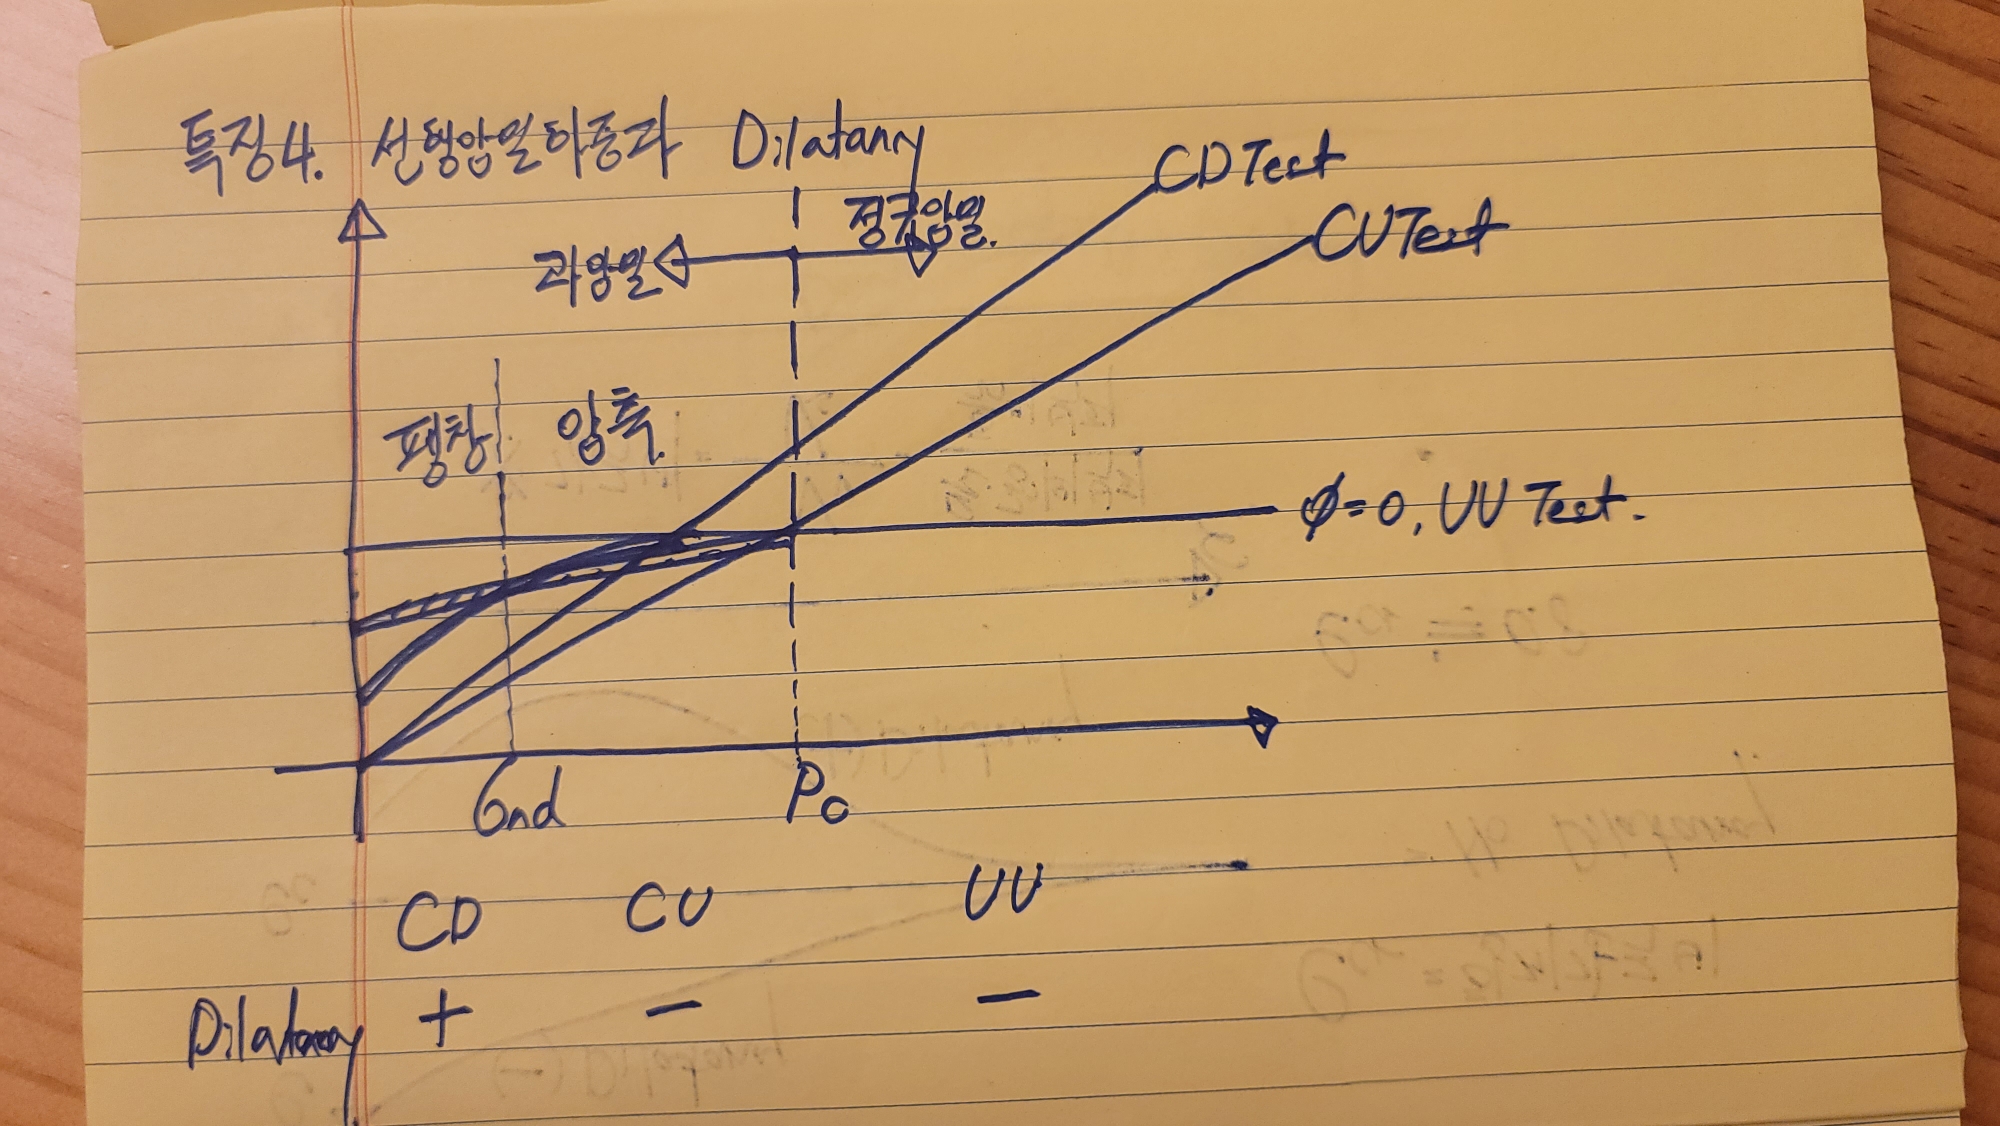 특징4. 선행압밀하중과 Dilatany
CD Test
정규압밀.
과압밀
CU Test
팽창 압축.
ϕ=0, UU Test.
σnd Po
CD CU UU
Dilatany + - -